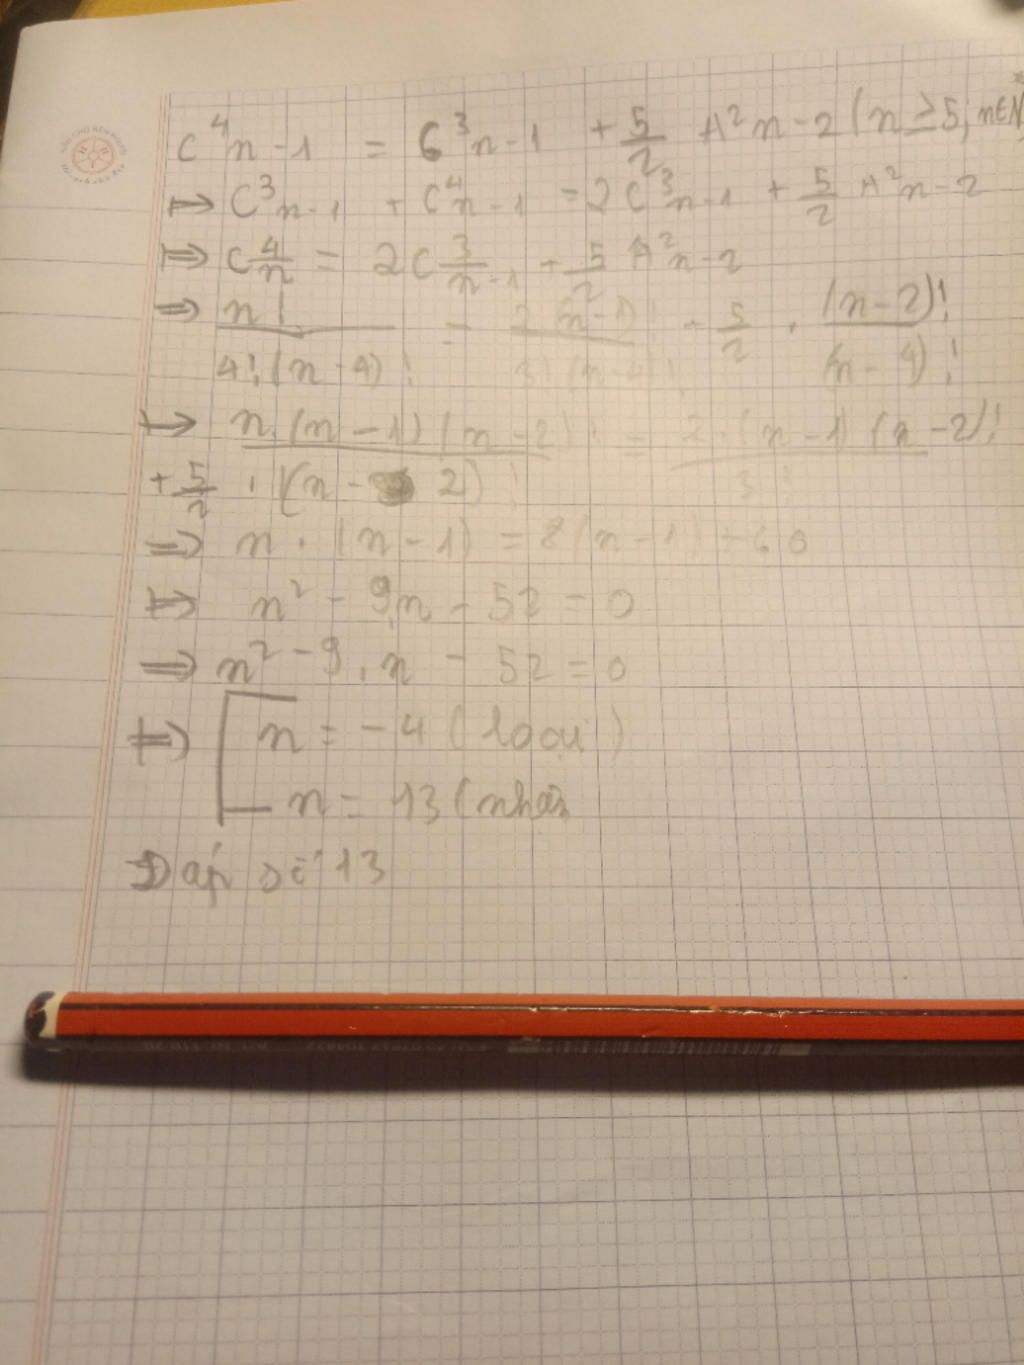 C⁴n-1 = C³n-1 + 5/2 A²n-2 (n ≥ 5, n∈N*
⇒ C³n-1 + C⁴n-1 = 2C³n-1 + 5/2 A²n-2
⇒ C4/n = 2C3/n-1 + 5/2 A²n-2
⇒ n!/4!(n-4)! = 2(n-1)!/3!(n-4)! + 5/2 . (n-2)!/(n-4)!
⇒ n.(n-1)(n-2)! = 2.(n-1)(n-2)!/3!
+ 5/2 . (n-2)!
⇒ n.(n-1) = 8(n-1)+60
⇒ n² - 9n - 52 = 0
⇒ n² - 9.n - 52 = 0
⇒ n = -4 (loại)
n = 13 (nhận
Đáp số 13